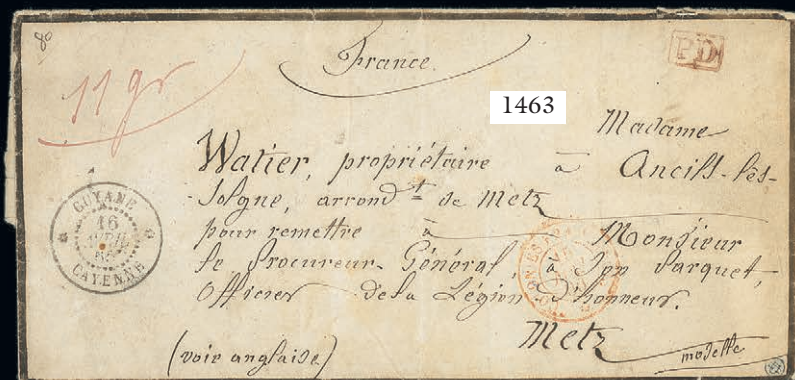 80
France
PD
11 gr
1463
Madame
Watier, propriétaire à Ancill-les-
Solgne, arrond.t de Metz
pour remettre à Monsieur
le Procureur-Général à Son Parquet,
Officier de la Légion d'honneur.
Metz
(voie anglaise)
moselle
GUYANE
16
CAYENNE